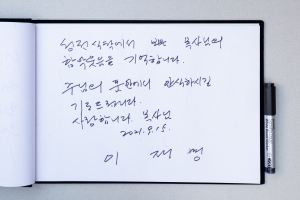 식탁에서 뵌 목사님의
함박웃음을 기억합니다.
주님의 품안에서 안식하시길
기도드립니다.
사랑합니다. 목사님
2021.9.15.
이 재 명